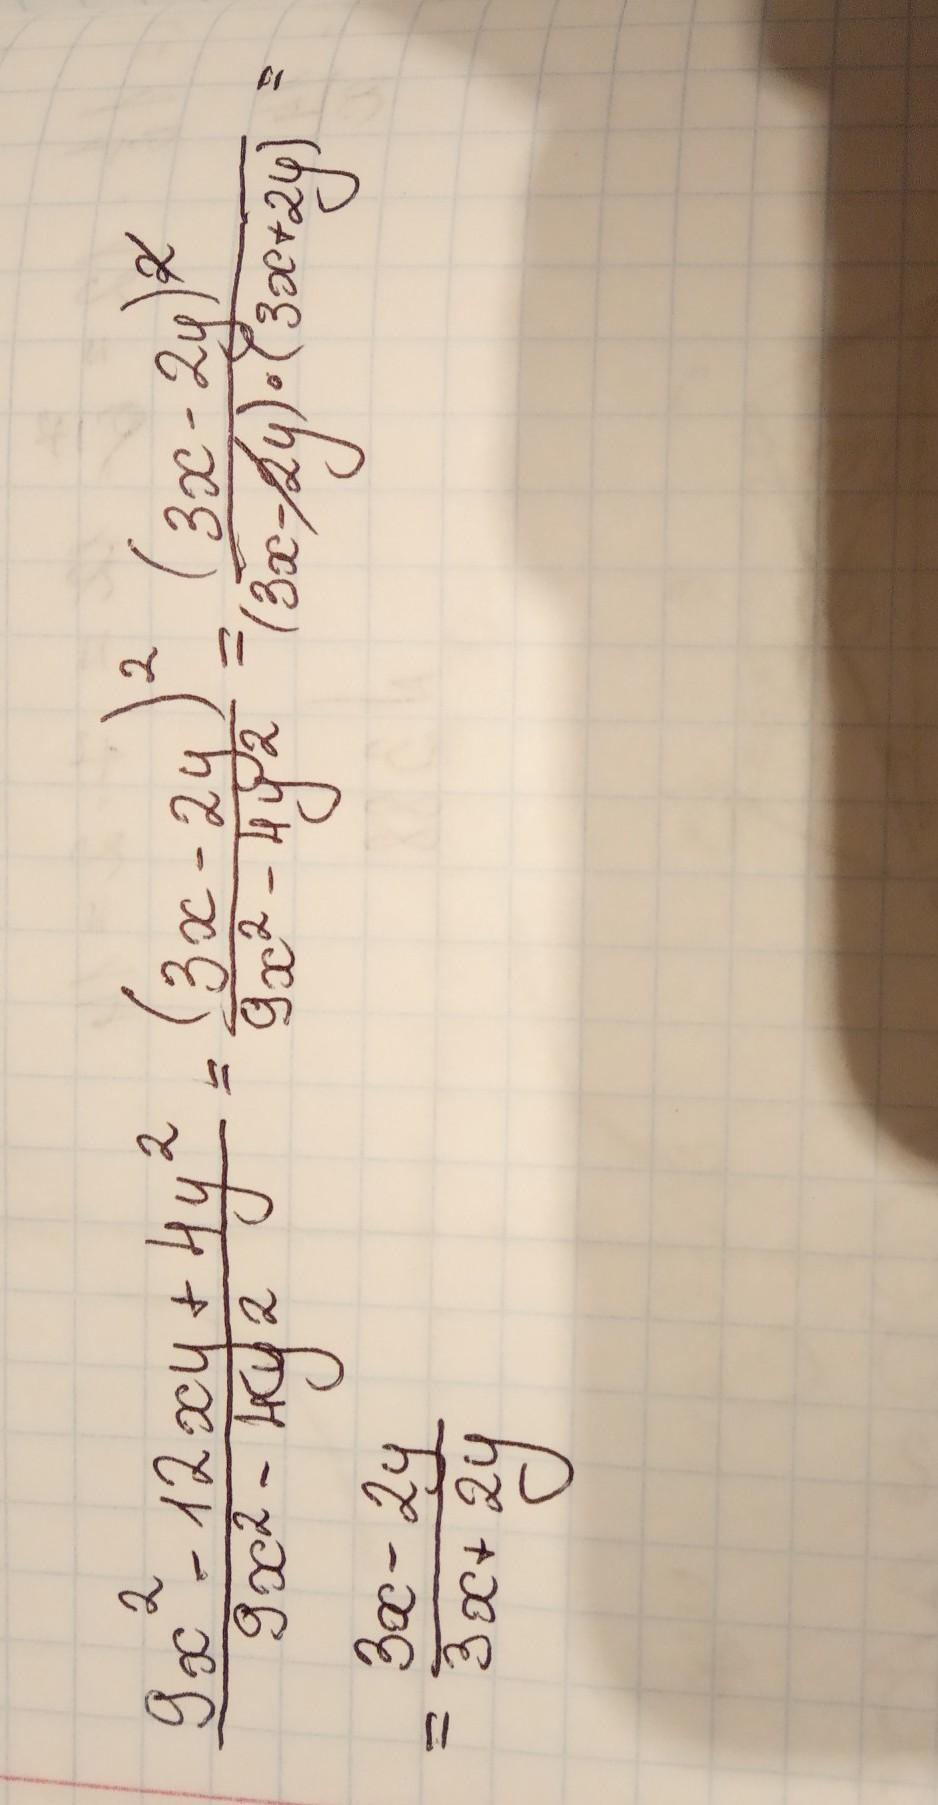 (9x² - 12xy + 4y²)/(9x² - 4y²) = (3x - 2y)²/(9x² - 4y²) = (3x - 2y)²/((3x - 2y) · (3x + 2y)) =
= (3x - 2y)/(3x + 2y)